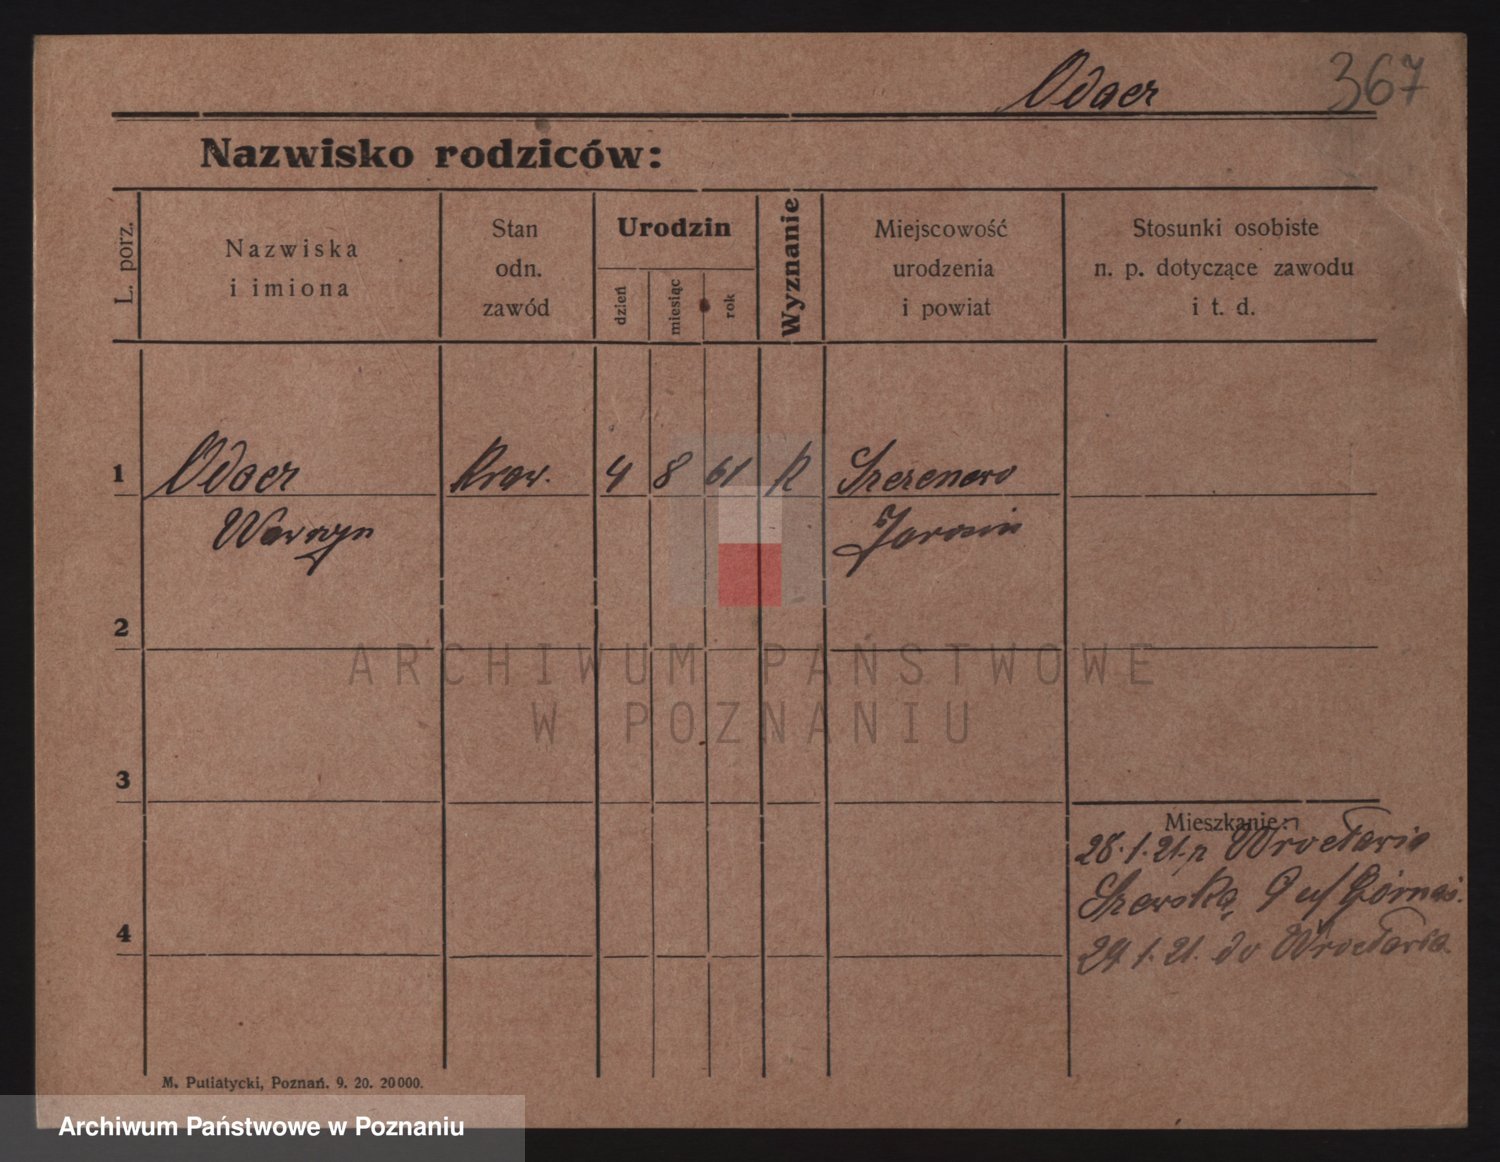 Odaer 367
Nazwisko rodziców:
L. porz.
Nazwiska
i imiona
Stan
odn.
zawód
Urodzin
dzień
miesiąc
rok
Wyznanie
Miejscowość
urodzenia
i powiat
Stosunki osobiste
n. p. dotyczące zawodu
i t. d.
1 Odaer Kraw. 4 8 61 K
Wawrzyn
2
ARCHIWUM PAŃSTWOWE
W POZNANIU
3
Mieszkanie:
28.1.21. z Wrocławia
29.1.21. do Wrocławia.
4
M. Putiatycki, Poznań. 9. 20. 20000.
Archiwum Państwowe w Poznaniu